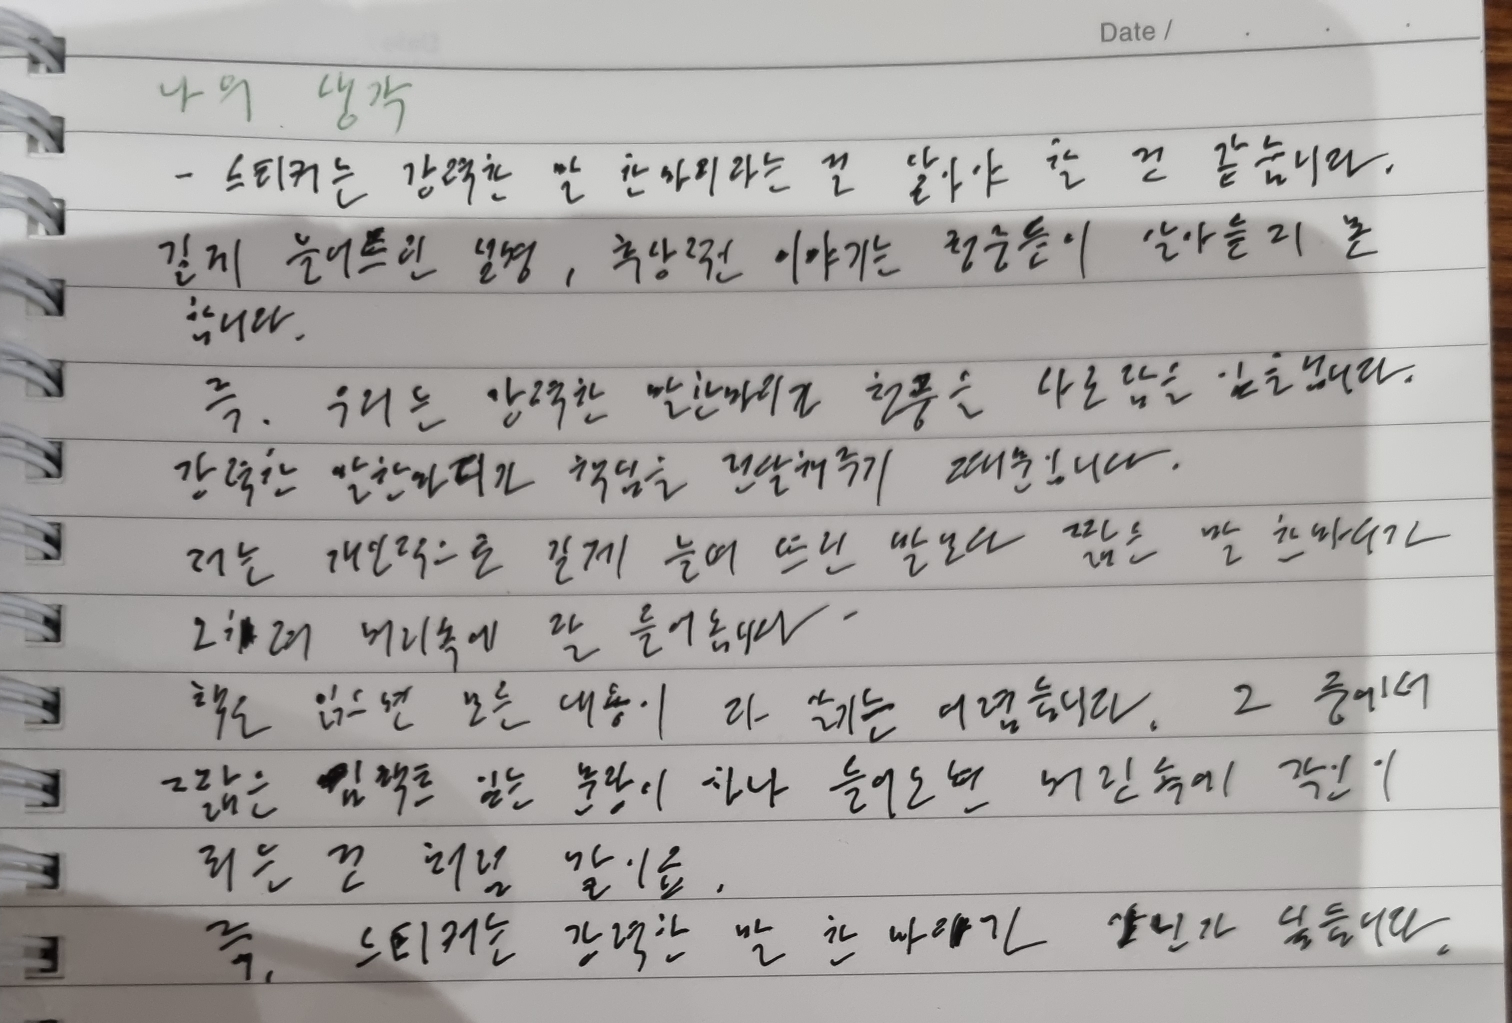 Date /
나의 생각
- 스티커는 강력한 말 한마디라는 걸 알아야 할 건 같습니다.
길게 늘어뜨린 설명, 추상적인 이야기는 청중들이 알아들리 못
합니다.
즉. 우리는 강력한 말한마디로 청중을 사로잡을
강력한 말한마디가 핵심을 전달해주기 때문입니다.
저는 개인적으로 길게 늘어 뜨린 말보다 짧은 말 한마디가
오히려 머리속에 잘 들어옵니다.
책도 읽으면 모든 내용이 다 남기는 어렵습니다. 그 중에서
짧은 임팩트 있는 문장이 하나 들어오면 머릿속에 각인이
되는 것 처럼 말이죠.
즉, 스티커는 강력한 말 한마디가